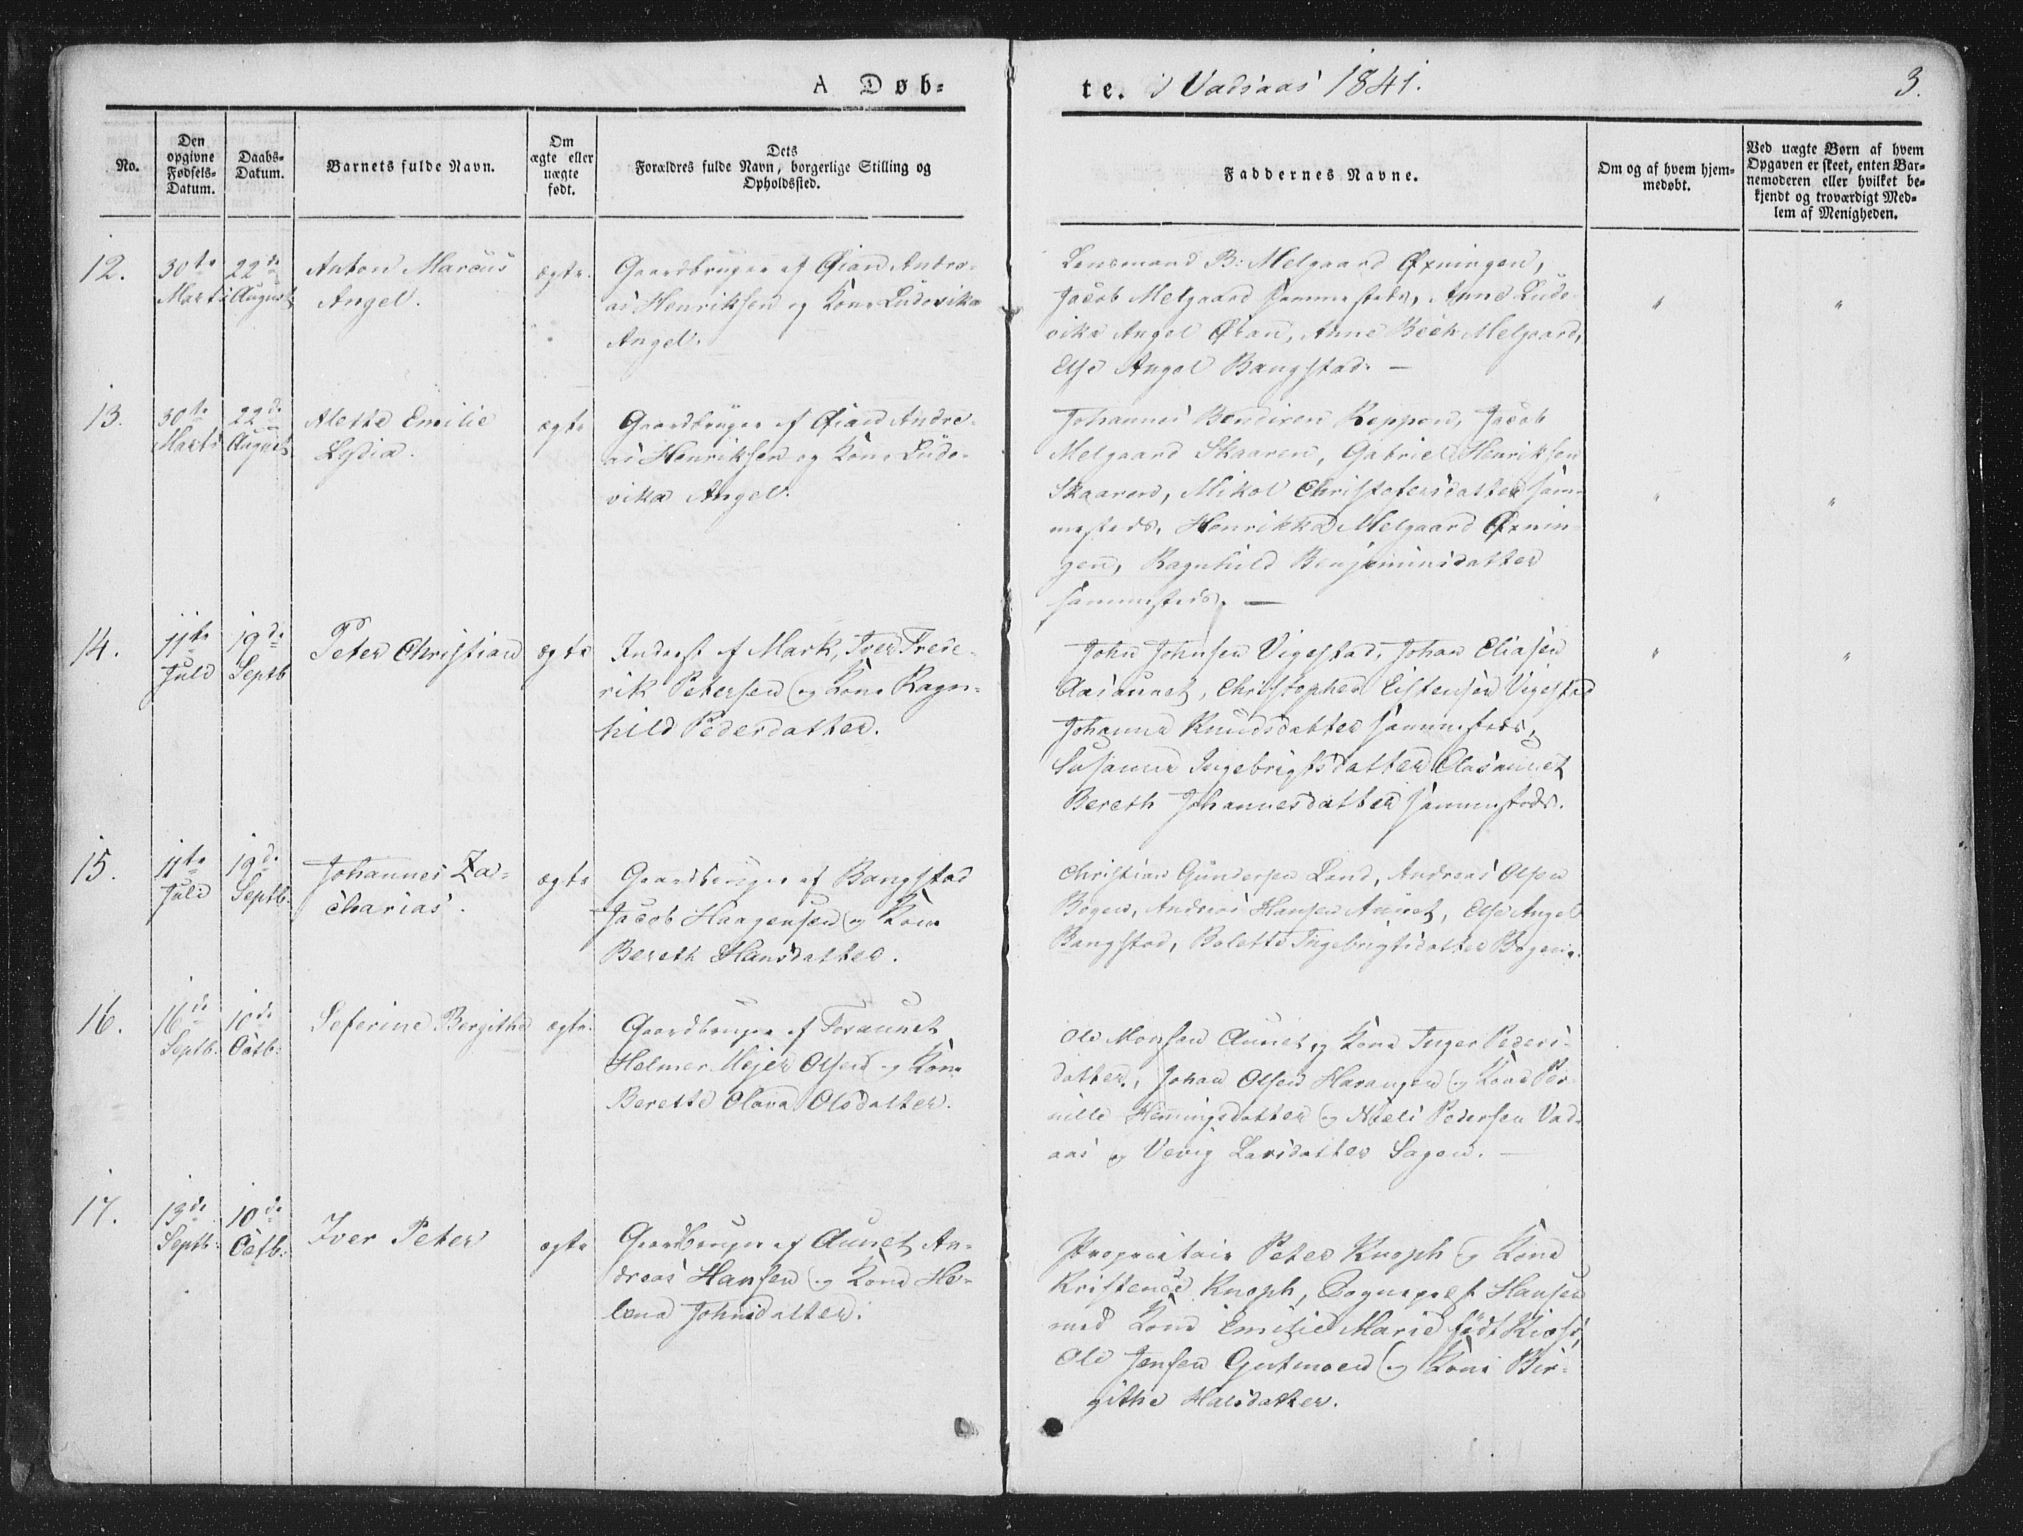 A Døb=
te. i Vadsaas 1841.
3.
No.
Den opgivne Fødsels-Datum.
Daabs-Datum.
Barnets fulde Navn.
Om ægte eller uægte født.
Dets Forældres fulde Navn, borgerlige Stilling og Opholdssted.
Faddernes Navne.
Om og af hvem hjem-medøbt.
Ved uægte Børn af hvem Opgaven er skeet, enten Bar-nemoderen eller hvilket be-kjendt og troværdigt Med-lem af Menigheden.
12.
30te Marts
22de August
Anton Marcus
Angel.
ægte.
Gaardbruger af Øian Andre=
as Henriksen og Kone Ludovika
Angel.
Lensmand B: Melgaard Øxningen,
Jacob Melgaard sammesteds, Anne Ludo=
vika Angel Øian, Anne Bech Melgaard,
Else Angel Bangstad. —
"
"
13.
30te Marts
22de August
Alette Emilie
Lydia.
ægte
Gaardbruger af Øian Andre=
as Henriksen og Kone Ludo=
vika Angel.
Johannes Bendixen Reppen, Jacob
Melgaard Skaaren, Gabriel Henriksen
Skaaren, Mikol Christofersdatter sam=
mesteds, Henrikka Melgaard Øxnin=
gen, Ragnhild Benjaminsdatter
sammesteds. —
"
"
14.
11te Juli
19de Septb
Peter Christian
ægte
Inderst af Mark, Iver Frede=
rik Petersen og Kone Ragn=
hild Pedersdatter.
John Johnsen Vigestad, Johan Eliasen
Aasaunet, Christopher Eistensen Vigestad
Johanna Knudsdatter sammesteds,
Susanna Ingebrigtsdatter Aasaunet
Bereth Johannesdatter sammesteds.
"
"
15.
11te Juli
19de Septb.
Johannes Za=
charias.
ægte
Gaardbruger af Bangstad
Jacob Haagensen og Kone
Bereth Hansdatter.
Christian Gundersen Lund, Andreas Olsen
Bogen, Andreas Hansen Aunet, Else Angel
Bangstad, Bolette Ingebrigtsdatter Bogen.
16.
16de Septb.
10de Octb:
Seferine Bergithe
ægte.
Gaardbruger af Fosaunet
Helmer Mejer Olsen og Kone
Berette Olava Olsdatter.
Ole Monsen Aunet og Kone Inger Peders=
datter, Johan Olsen Harangen og Kone Per=
nille Hemingsdatter og Niels Pedersen Vad=
aas og Vevig Larsdatter Sagen. —
17.
13de Septb:
10de Octb:
Iver Peter
ægte
Gaardbruger af Aunet An=
dreas Hansen og Kone He=
lena Johnsdatter.
Proprietair Peter Knoph og Kone
Kristence Knoph, Sogneprest Hansen
med Kone Emilie Marie født
Ole Jensen Gutmoen og Kone Bir=
githe Halsdatter.